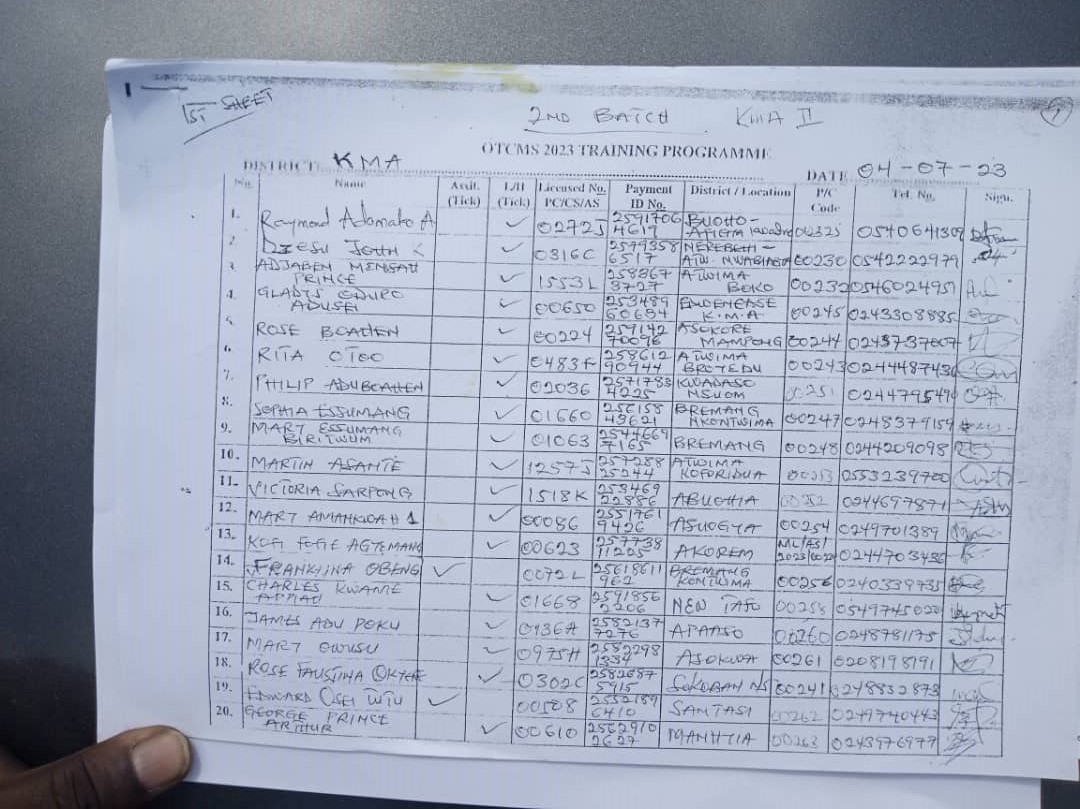 1ST SHEET
2ND BATCH KMA II 1
OTCMS 2023 TRAINING PROGRAMME
DISTRICT: KMA DATE 04-07-23
No. Name Assit. (Tick) L/H (Tick) Licensed No. PC/CS/AS Payment ID No. District / Location P/C Code Tel. No. Sign.
1. Raymond Adomako A ✓ 0272J 2591706 4617 BUOHO- 00325 0540641309
2. JOHN K ✓ 0316C 2579358 6517 00230 0542222979
3. ADJABEN MENSAH PRINCE ✓ 1553L 258867 3727 ATWIMA BOKO 00232 0546024951
4. GLADYS ODURO ADUSEI ✓ 00650 253489 60654 K.M.A 00245 0243308885
5. ROSE BOATEN ✓ 00224 259142 70096 ASOKORE MAMPONG 00244 0243737007
6. RITA OTOO ✓ 0483F 258612 90944 ATWIMA 00243 0244487436
7. PHILIP ADUBOAHEN ✓ 02036 2571783 4225 KWADASO NSUOM 00251 0244795490
8. SOPHIA ESSUMANG ✓ 01660 256158 49621 BREMANG NKONTWIMA 00247 0248379159
9. MARY ESSUMANG BIRITWUM ✓ 01063 2544669 7165 BREMANG 00248 0244209098
10. MARTIN ASANTE ✓ 1257J 257288 25244 ATWIMA KOFORIDUA 00253 0553239700
11. VICTORIA SARPONG ✓ 1518K 253469 22886 ABUOHIA 00252 0244697871
12. MARY AMANKWAH 1 ✓ 00086 2551761 9426 ASUOGYA 00254 0249701389
13. KOFI FOFIE AGYEMANG ✓ 00623 257738 11225 AKOREM 0244703436
14. FRANKLINA OBENG ✓ 0072L 25618611 962 BREMANG KONTWIMA 00256 0240339731
15. CHARLES KWAME ✓ 01668 2591856 2206 NEW TAFO 00258 0549745020
16. JAMES ADU POKU ✓ 0936A 2582137 7276 APAASO 00260 0248781175
17. MARY OWUSU ✓ 0975H 2582298 1334 ASOKWA 00261 0208198191
18. ROSE FAUSTINA OKYERE ✓ 0302C 2582687 5915 SOKOBAN NS 00241 0248832873
19. EDWARD OSEI TUTU ✓ 00508 2552189 6410 SANTASI 00262 0249740443
20. GEORGE PRINCE ARTHUR ✓ 00610 2562910 2627 MANHYIA 00263 0243976977